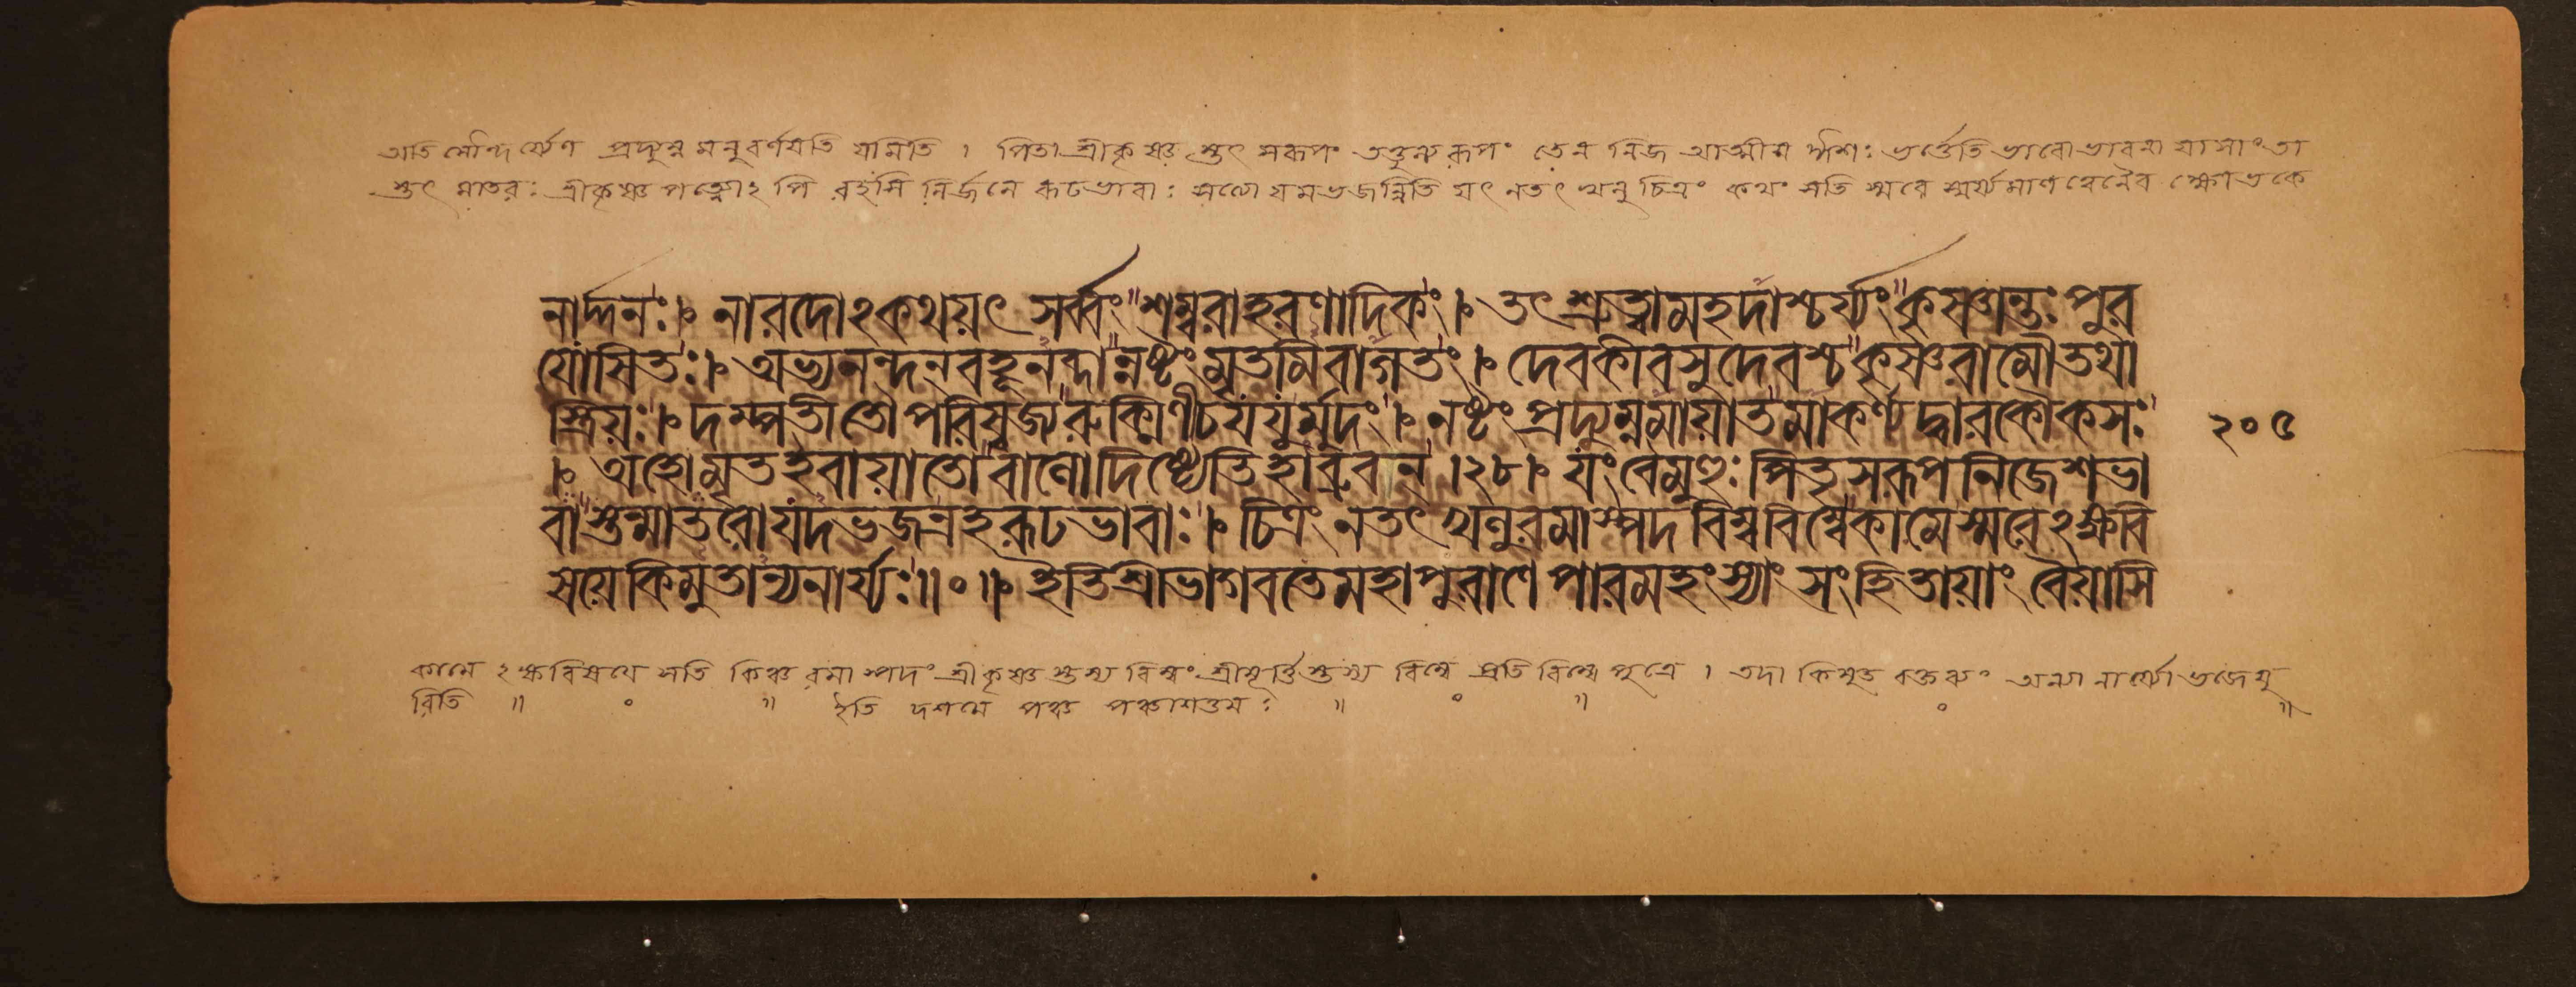 অতি সৌন্দর্য্যেণ প্রদ্যুম্ন মনুবর্ণযতি যমিতি । পিতা শ্রীকৃষ্ণ স্তৎ সরূপং তত্তুল্য রূপং তেন নিজ আত্মীয় ঈশঃ ভর্ত্তেতি ভাবো ভাবনা যাসাং তা
স্তৎ মাতরঃ শ্রীকৃষ্ণ পত্ন্যোঽ পি রহসি নির্জনে রূঢভাবাঃ সত্যো যমভজন্নিতি যৎ নতৎ খলু চিত্রং কথং সতি স্মরে স্মর্য্যমাণত্বেনৈব ক্ষোভকে
নার্দ্দনঃ। নারদোঽকথয়ৎ সর্ব্বং শম্বরাহরণাদিকং। তৎ শ্রুত্বামহদাশ্চর্য্যং কৃষ্ণান্তঃপুর
যোষিতঃ। অভ্যনন্দনবহূনব্দান্নষ্টং মৃতমিবাগতং। দেবকীবসুদেবশ্চ কৃষ্ণরামৌতথা
স্ত্রিয়ঃ। দম্পতীতৌপরিষ্বজ্য রুক্মিণীচযযুর্মুদং। নষ্টং প্রদ্যুম্নমায়াতমাকর্ণ্যদ্বারকৌকসঃ ২০৫
। অহোমৃতইবায়াতোবালোদিষ্ট্যেতিহাব্রুবন্ ।২৮। যংবৈমুহুঃ পিতৃসরূপনিজেশভা
বাস্তন্মাতরোযদভজন্রহরূঢভাবাঃ। চিত্রং নতৎ খলুরমাস্পদবিম্ববিম্বেকামেস্মরেঽক্ষবি
ষয়েকিমুতান্যনার্য্যঃ॥০॥ ইতিশ্রীভাগবতেমহাপুরাণে পারমহংস্যাং সংহিতায়াং বৈয়াসি
কামে ঽক্ষবিষযে সতি কিঞ্চ রমাস্পদং শ্রীকৃষ্ণ স্তস্য বিম্বং শ্রীমূর্ত্তিস্তস্য বিম্বে প্রতিবিম্বে পুত্রে । তদা কিমুত বক্তব্যং অন্যা নার্য্যো ভজেযু
রিতি ॥ ० ॥ ইতি দশমে পঞ্চ পঞ্চাশত্তমঃ ॥ ० ॥ ० ॥